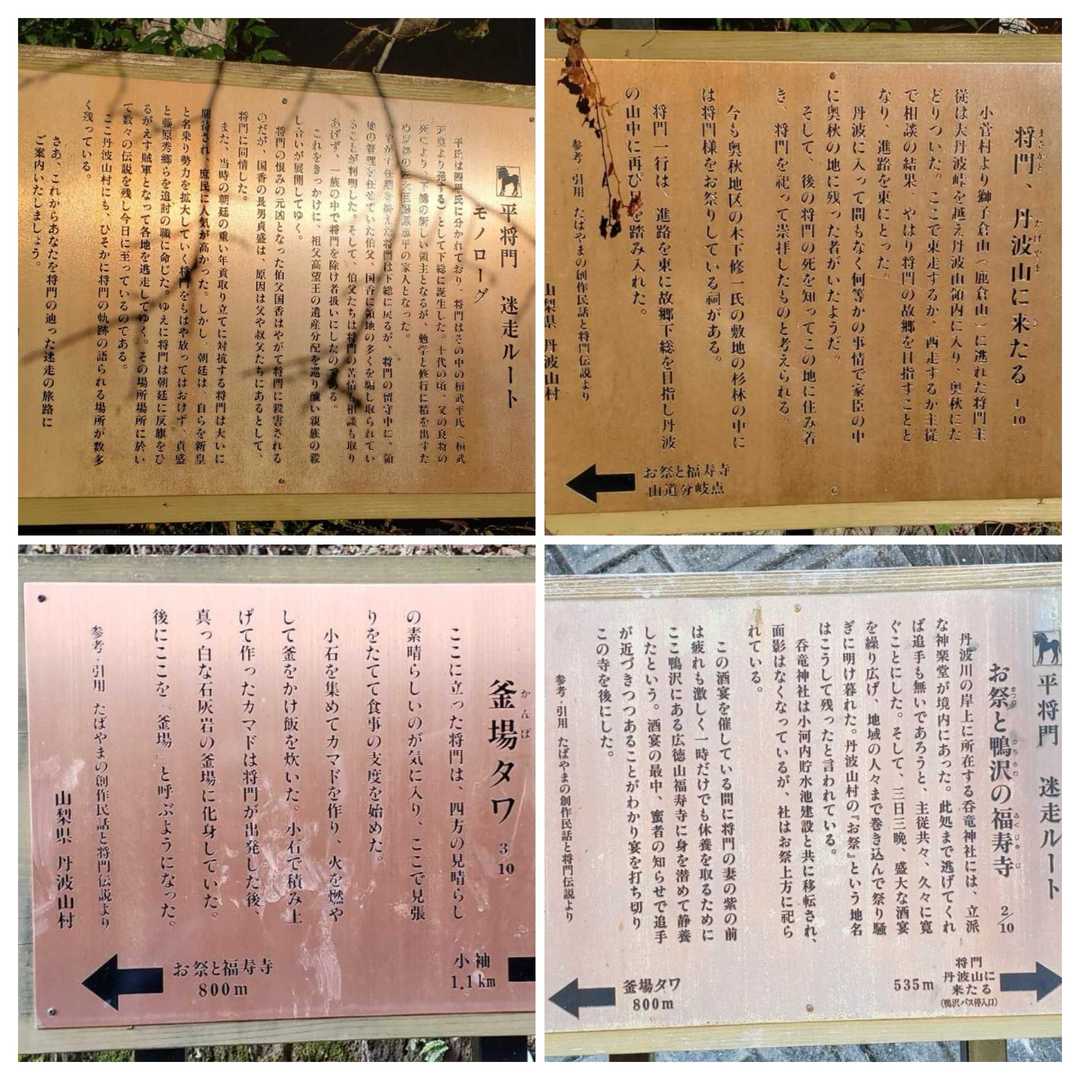 平将門 迷走ルート
モノローグ
平氏は四系氏に分かれており、将門はその中の桓武平氏（桓武
天皇より発する）として下総に誕生した。十代の頃、父の良将の
死により、下総の新しい領主となるが、勉学と修行に精を出すた
の家人となった。
将門の留守中に、領
地の管理を任せていた伯父、国香に領地の多くを騙し取られてい
ることが判明した。そして、伯父たちは将門の苦情も相談も取り
あげず、一族の中で将門を除け者扱いにしたのである。
これをきっかけに、祖父高望王の遺産分配を巡り醜い親族の殺
し合いが展開してゆく。
将門の恨みの元凶となった伯父国香はやがて将門に殺害される
のだが、国香の長男貞盛は、原因は父や叔父たちにあるとして、
将門に同情した。
また、当時の朝廷の重い年貢取り立てに対抗する将門は大いに
期待され、庶民に人気が高かった。しかし、朝廷は、自らを新皇
と名乗り勢力を拡大していく将門をもはや放ってはおけず、貞盛
と藤原秀郷らを追討の職に命じた。ゆえに将門は朝廷に反旗をひ
るがえす賊軍となって各地を逃走してゆく。その場所場所に於い
て数々の伝説を残し今日に至っているのである。
ここ丹波山村にも、ひそかに将門の軌跡の語られる場所が数多
く残っている。
さあ、これからあなたを将門の辿った迷走の旅路に
ご案内いたしましょう。
将門、丹波山に来たる 1/10
まさかど たばやま き
小菅村より獅子倉山（鹿倉山）に逃れた将門主
従は大丹波峠を越え丹波山領内に入り、奥秋にた
どりついた。ここで東走するか、西走するか主従
で相談の結果、やはり将門の故郷を目指すことと
なり、進路を東にとった。
丹波に入って間もなく何等かの事情で家臣の中
に奥秋の地に残った者がいたようだ。
そして、後の将門の死を知ってこの地に住み着
き、将門を祀って崇拝したものと考えられる。
今も奥秋地区の木下修一氏の敷地の杉林の中に
は将門様をお祭りしている祠がある。
将門一行は、進路を東に故郷下総を目指し丹波
の山中に再び足を踏み入れた。
参考・引用 たばやまの創作民話と将門伝説より
山梨県 丹波山村
お祭と福寿寺
山道分岐点
釜場タワ 3/10
かんば
ここに立った将門は、四方の見晴らし
の素晴らしいのが気に入り、ここで見張
りをたてて食事の支度を始めた。
小石を集めてカマドを作り、火を燃や
して釜をかけ飯を炊いた。小石で積み上
げて作ったカマドは将門が出発した後、
真っ白な石灰岩の釜場に化身していた。
後にここを「釜場」と呼ぶようになった。
参考・引用 たばやまの創作民話と将門伝説より
山梨県 丹波山村
お祭と福寿寺
800m
小袖
1.1km
平将門 迷走ルート
お祭と鴨沢の福寿寺 2/10
丹波川の岸上に所在する呑竜神社には、立派
な神楽堂が境内にあった。此処まで逃げてくれ
ば追手も無いであろうと、主従共々、久々に寛
ぐことにした。そして、三日三晩、盛大な酒宴
を繰り広げ、地域の人々まで巻き込んで祭り騒
ぎに明け暮れた。丹波山村の『お祭』という地名
はこうして残ったと言われている。
呑竜神社は小河内貯水池建設と共に移転され、
面影はなくなっているが、社はお祭上方に祀ら
れている。
この酒宴を催している間に将門の妻の紫の前
は疲れも激しく一時だけでも休養を取るために
ここ鴨沢にある広徳山福寿寺に身を潜めて静養
したという。酒宴の最中、蜜者の知らせで追手
が近づきつつあることがわかり宴を打ち切り
この寺を後にした。
参考・引用 たばやまの創作民話と将門伝説より
釜場タワ
800m
535m
将門
丹波山に
来たる
(鴨沢バス停入口)